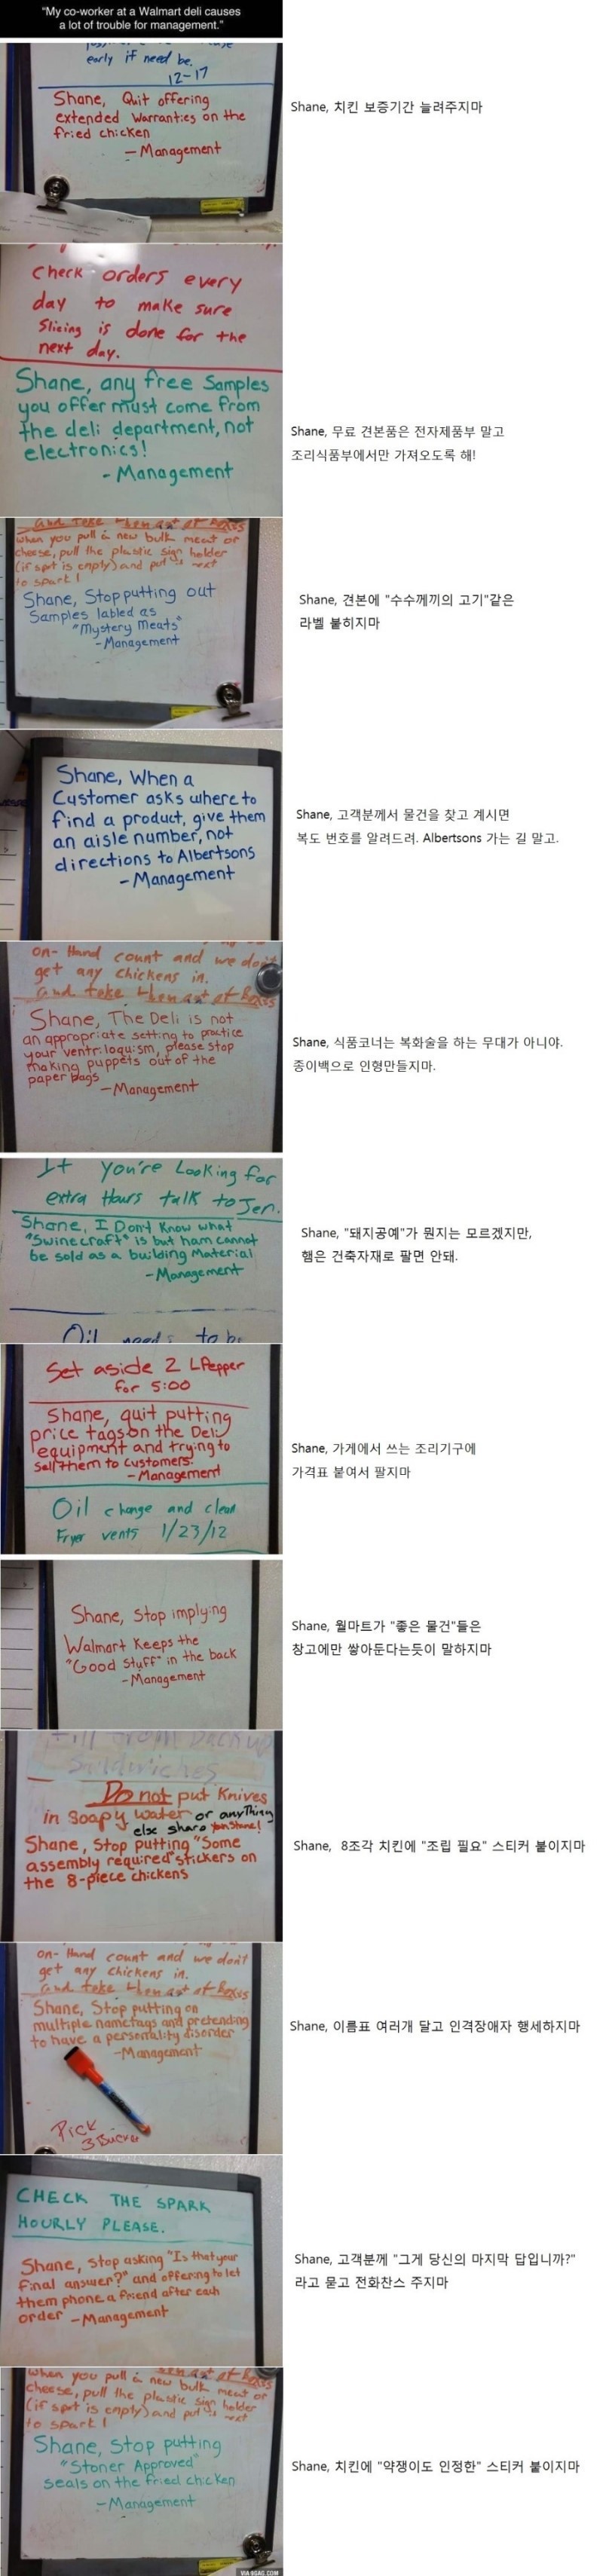 "My co-worker at a Walmart deli causes
a lot of trouble for management."
early if need be.
12-17
Shane, Quit offering
extended warranties on the
fried chicken
- Management
Shane, 치킨 보증기간 늘려주지마
Check orders every
day to make sure
Slicing is done for the
next day.
Shane, any free Samples
you offer must come from
the deli department, not
electronics!
- Management
Shane, 무료 견본품은 전자제품부 말고
조리식품부에서만 가져오도록 해!
and take them out of boxes
when you pull a new bulk meat or
cheese, pull the plastic sign holder
(if spot is empty) and put is next
to spark!
Shane, Stop putting out
Samples labled as
"Mystery Meats"
- Management
Shane, 견본에 "수수께끼의 고기"같은
라벨 붙히지마
Shane, When a
Customer asks where to
find a product, give them
an aisle number, not
directions to Albertsons
- Management
Shane, 고객분께서 물건을 찾고 계시면
복도 번호를 알려드려. Albertsons 가는 길 말고.
on-Hand count and we don't
get any chickens in.
and take them out of Boxes
Shane, The Deli is not
an appropriate setting to practice
your ventriloquism, please stop
making puppets out of the
paper bags
- Management
Shane, 식품코너는 복화술을 하는 무대가 아니야.
종이백으로 인형만들지마.
If you're Looking for
extra Hours talk to Jen.
Shane, I Don't Know what
"Swinecraft" is but ham cannot
be sold as a building Material
- Management
Oil needs to be
Shane, "돼지공예"가 뭔지는 모르겠지만,
햄은 건축자재로 팔면 안돼.
Set aside 2 LPepper
for 5:00
Shane, quit putting
price tags on the Deli
equipment and trying to
sell them to customers.
- Management
Oil change and clean
Fryer vents 1/23/12
Shane, 가게에서 쓰는 조리기구에
가격표 붙여서 팔지마
Shane, Stop implying
Walmart Keeps the
"Good Stuff" in the back
- Management
Shane, 월마트가 "좋은 물건"들은
창고에만 쌓아둔다는듯이 말하지마
Fill from backup
Sandwiches
Do not put Knives
in Soapy water or anything
else sharp
Shane, Stop putting "Some
assembly required" stickers on
the 8-piece chickens
Shane, 8조각 치킨에 "조립 필요" 스티커 붙이지마
on-Hand count and we don't
get any chickens in.
and take them out of Boxes
Shane, Stop putting on
multiple nametags and pretending
to have a personality disorder
- Management
Pick
3 Bucket
Shane, 이름표 여러개 달고 인격장애자 행세하지마
CHECK THE SPARK
HOURLY PLEASE.
Shane, Stop asking "Is that your
final answer?" and offering to let
them phone a friend after each
order - Management
Shane, 고객분께 "그게 당신의 마지막 답입니까?"
라고 묻고 전화찬스 주지마
and take them out of Boxes
when you pull a new bulk meat or
cheese, pull the plastic sign holder
(if spot is empty) and put is next
to spark!
Shane, Stop putting
"Stoner Approved"
seals on the fried chicken
- Management
Shane, 치킨에 "약쟁이도 인정한" 스티커 붙이지마
VIA 9GAG.COM